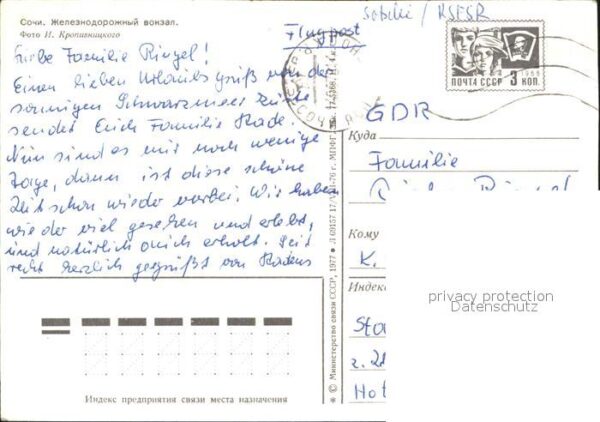 Сочи. Железнодорожный вокзал.
Фото И. Кропивницкого
Flugpost
Sotschi / RSFSR
Liebe Familie Ringel!
Einen lieben Urlaubsgruß von der
sonnigen Schwarzmeer Küste
sendet Euch Familie Rade.
Nun sind es nur noch wenige
Tage, dann ist diese schöne
Zeit schon wieder vorbei. Wir haben
wieder viel gesehen und erlebt,
und natürlich auch erholt. Seit
recht herzlich gegrüßt von Radens
ПОЧТА СССР 3 КОП.
1966
GDR
Куда
Familie
Ringel
Кому
K.
Индекс
privacy protection
Datenschutz
Sta
z. 21
Hot
© Министерство связи СССР, 1977
Индекс предприятия связи места назначения